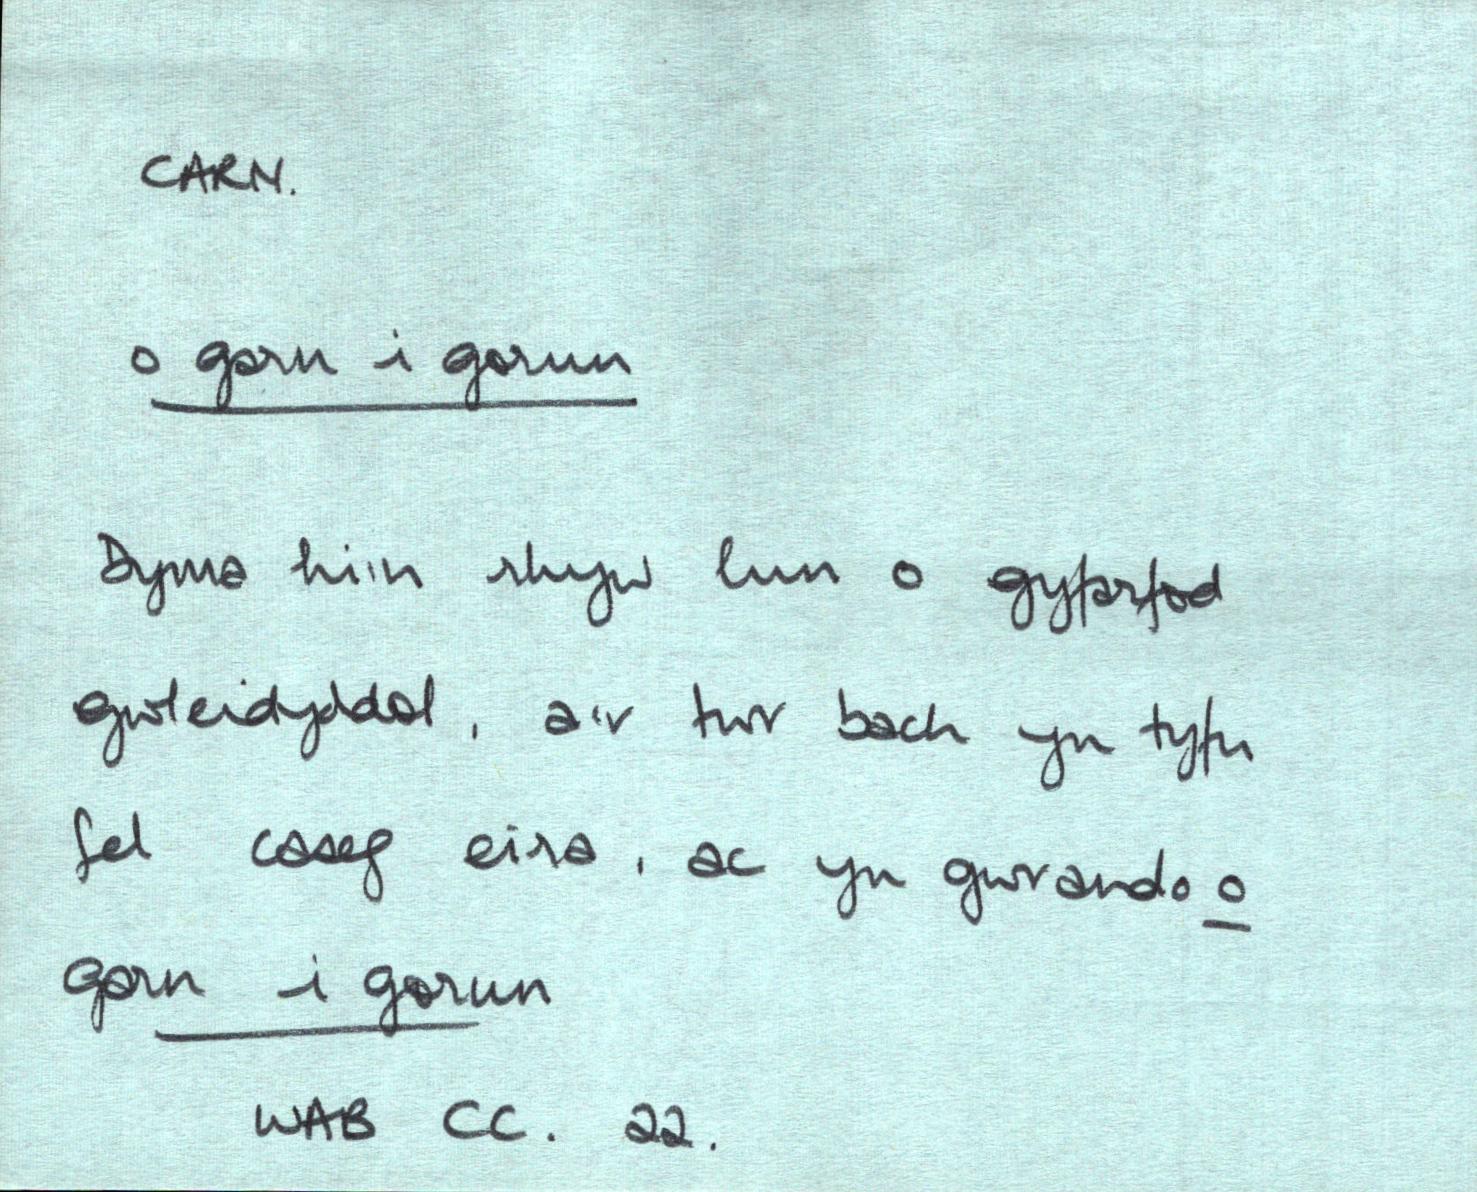 CARN.
o garn i gorun
Dyma hi'n rhyw lun o gyfarfod
gwleidyddol, a'r twr bach yn tyfu
fel caseg eira, ac yn gwrando o
garn i gorun
WAB CC. 22.